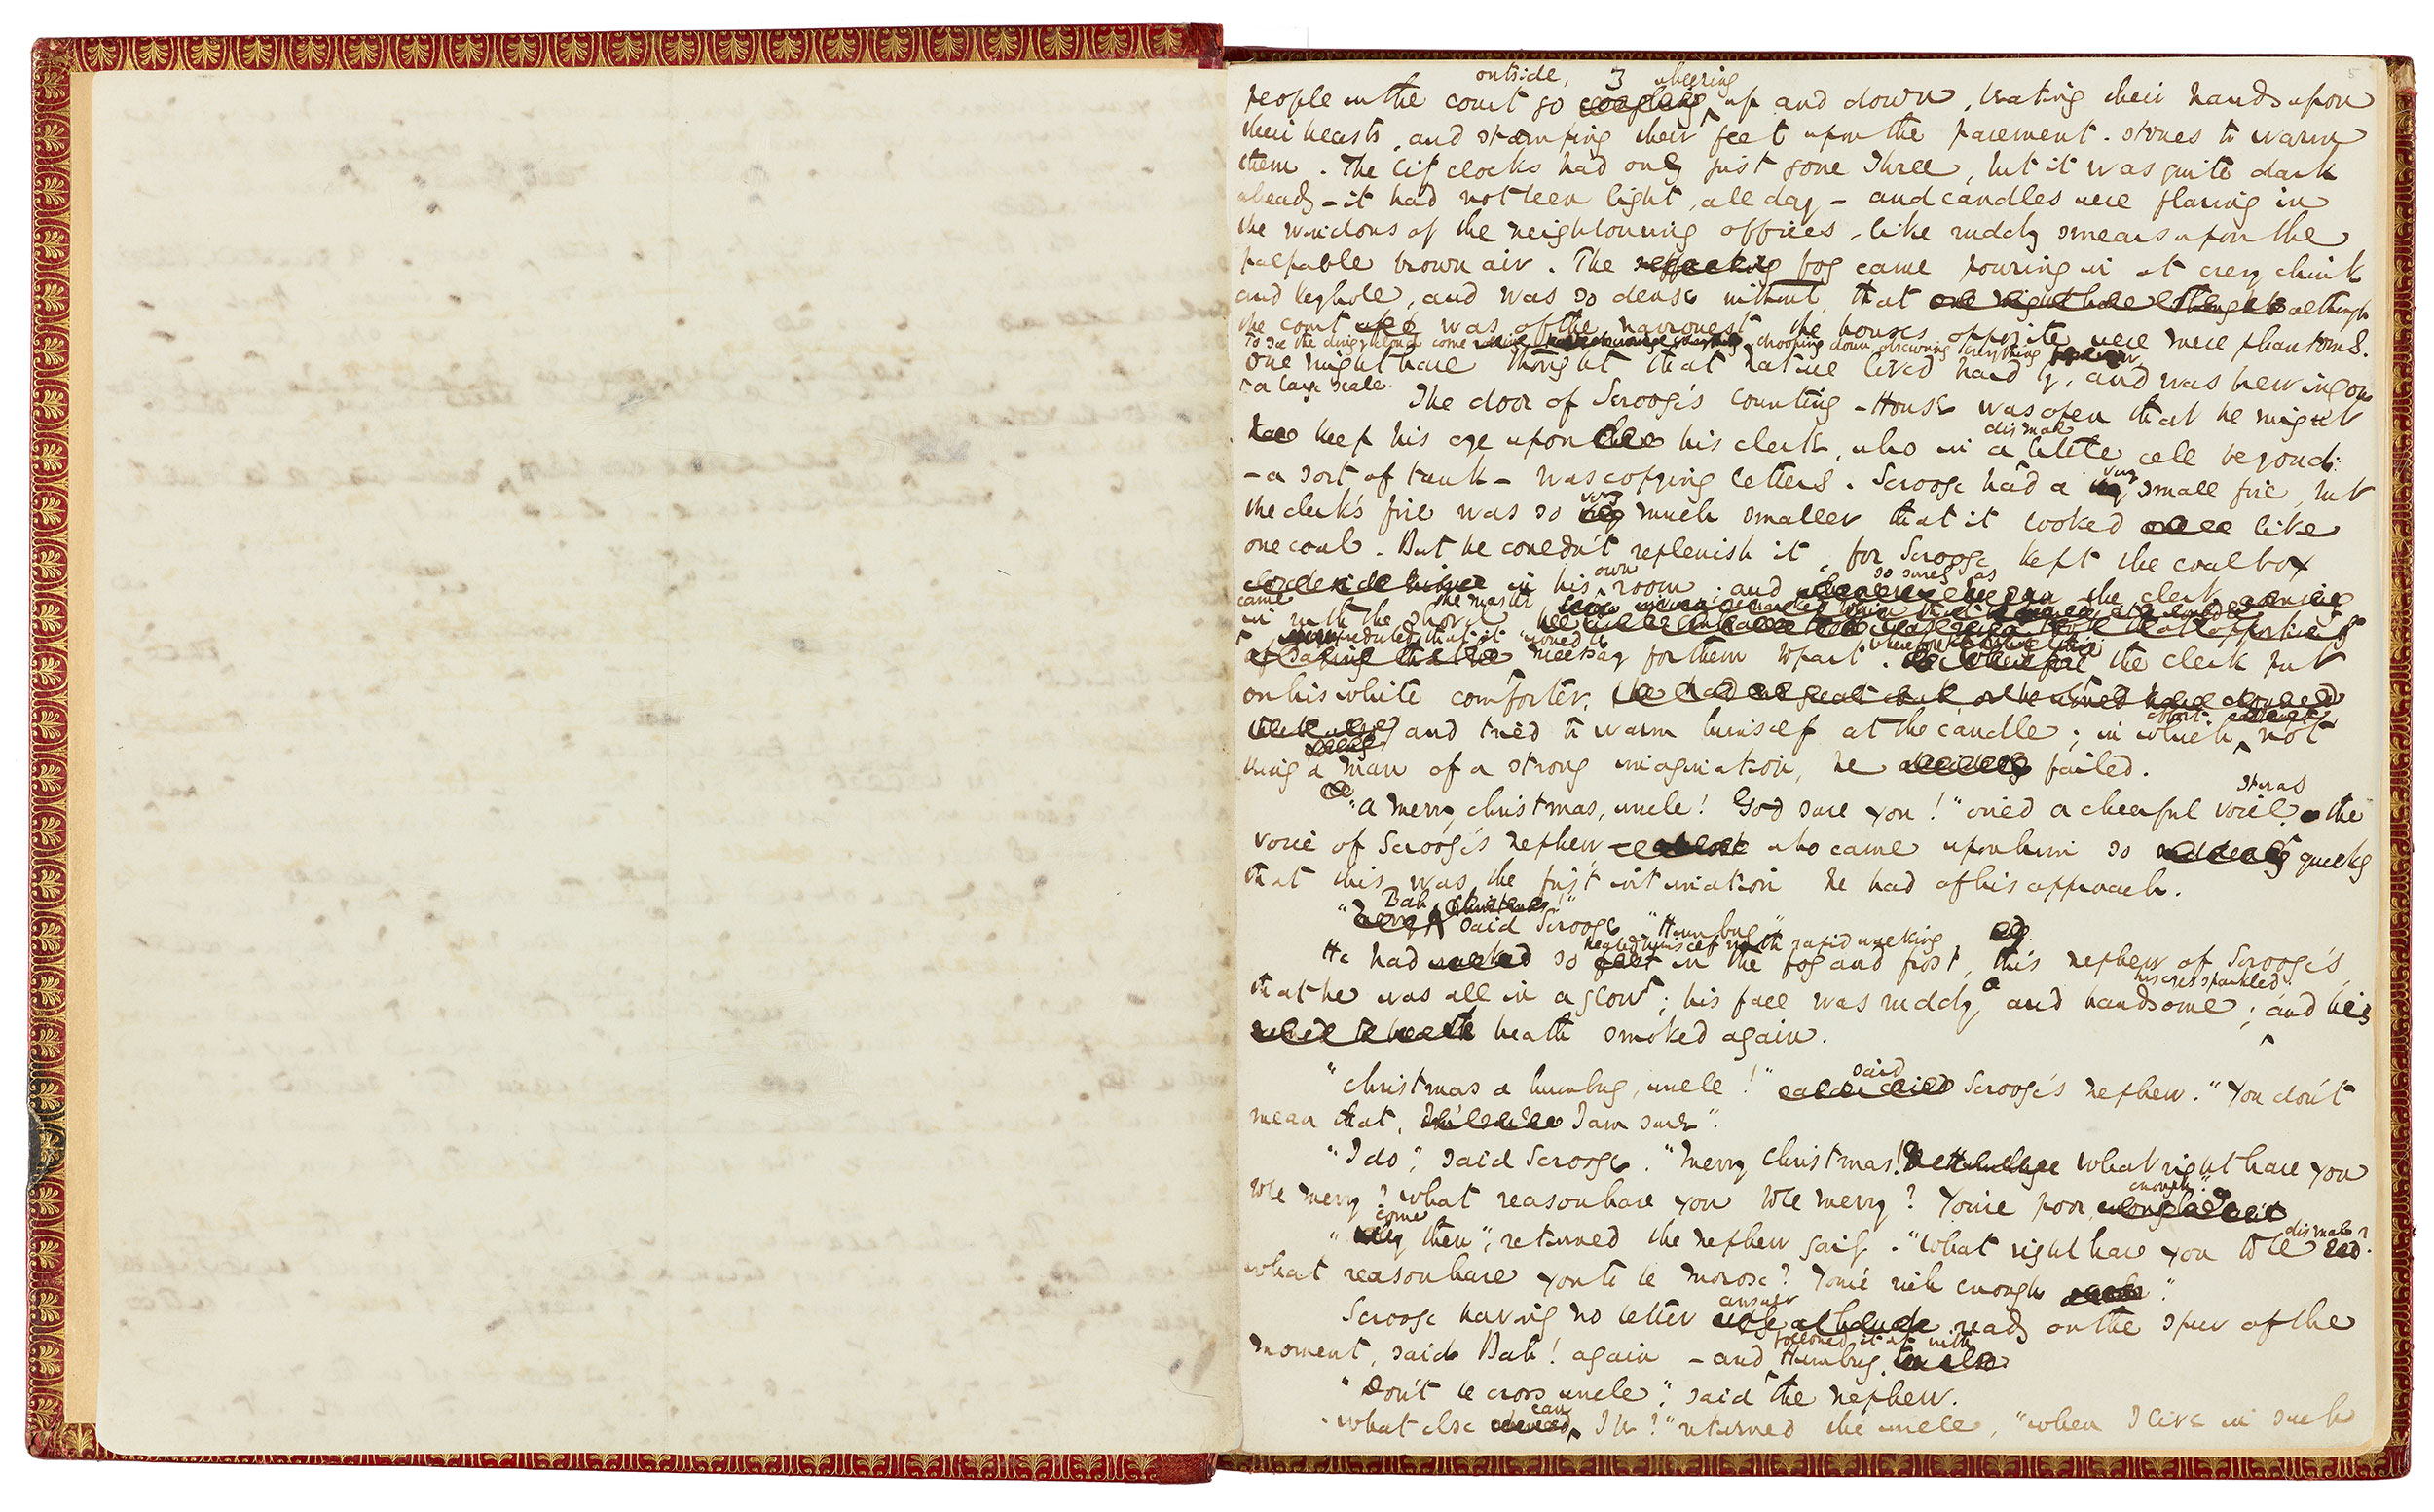 outside, 3 wheezing
people in the court go coughing up and down, beating their hands upon
their breasts, and stamping their feet upon the pavement-stones to warm
them. The City clocks had only just gone Three, but it was quite dark
already - it had not been light, all day - and candles were flaring in
the windows of the neighbouring offices, like ruddy smears upon the
palpable brown air. The fog came pouring in at every chink
and keyhole, and was so dense without, that one might have thought although
the court was of the narrowest the houses opposite were mere phantoms.
To see the dingy cloud come drooping down, obscuring everything
one might have thought that nature lived hard by, and was brewing on
a large scale.
The door of Scrooge's Counting-House was open that he might
keep his eye upon his clerk, who in a little cell beyond
dismal
- a sort of tank - was copying letters. Scrooge had a very small fire, but
the clerk's fire was so very much smaller that it looked like
one coal. But he couldn't replenish it, for Scrooge kept the coal box
own
in his room; and so surely as the clerk
came
in with the shovel the master
predicted that it would be
necessary for them to part. Wherefore the clerk put
on his white comforter,
and tried to warm himself at the candle; in which effort, not
being a man of a strong imagination, he failed.
"A merry christmas, uncle! God save you!" cried a cheerful voice. It was the
voice of Scrooge's nephew who came upon him so quickly
that this was the first intimation he had of his approach.
"Bah!" said Scrooge "Humbug"
heated himself with rapid walking
He had walked so fast in the fog and frost, this nephew of Scrooge's,
that he was all in a glow; his face was ruddy and handsome; and his
his eyes sparkled
breath smoked again.
said
"Christmas a humbug, uncle!" cried Scrooge's nephew. "You don't
mean that, I am sure".
"I do", said Scrooge. "Merry Christmas! What right have you
to be merry? what reason have you to be merry? You're poor enough."
come
"Why then", returned the nephew gaily. "What right have you to be sad. dismal?
what reason have you to be morose? You're rich enough."
answer
Scrooge having no better ready on the spur of the
moment, said Bah! again - and followed it up with Humbug.
"Don't be cross uncle", said the nephew.
can
"What else I be?" returned the uncle, "when I live in such